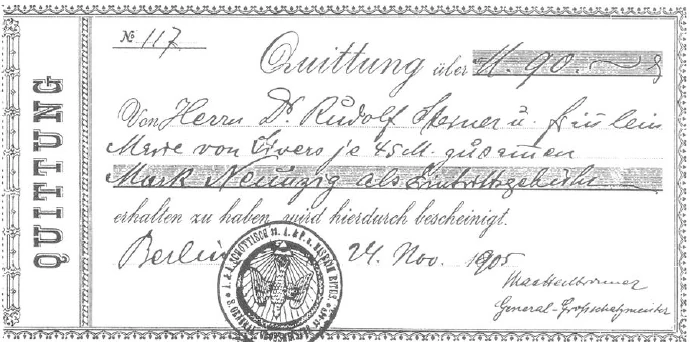 QUITTUNG
№ 117
Quittung über M. 90. — ₰
Von Herrn Dr. Rudolf Steiner u. Fräulein
Marie von Sivers je 45 M. zusammen
Mark Neunzig als Eintrittsgebühr
erhalten zu haben, wird hierdurch bescheinigt.
Berlin 24. Nov. 1905
Max Heilbronner
General-Großschatzmeister